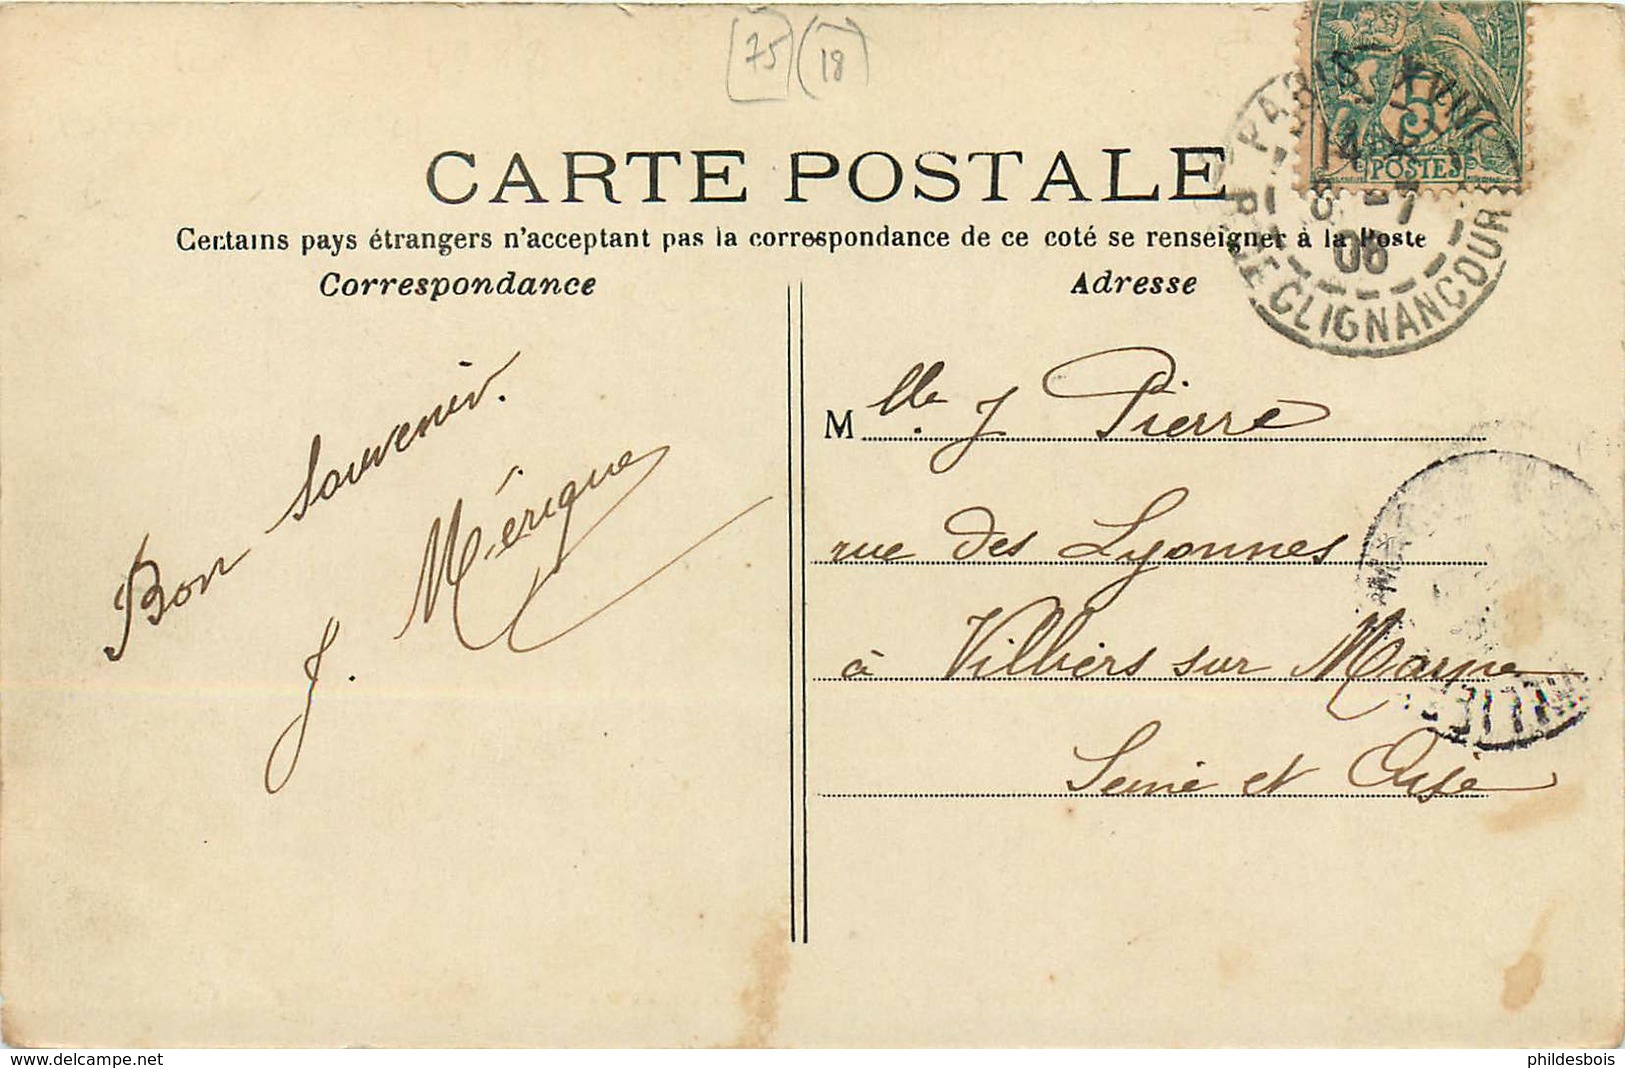 75 18
CARTE POSTALE
Certains pays étrangers n'acceptant pas la correspondance de ce coté se renseigner à la Poste
Correspondance
Adresse
5
POSTES
PARIS XVIII
14
8 -1
06
R. DE CLIGNANCOURT
Bon Souvenir.
J. Mérigue
Mlle. J Pierre
rue des Lyonnes
à Villiers sur Marne
Seine et Oise
www.delcampe.net
phildesbois